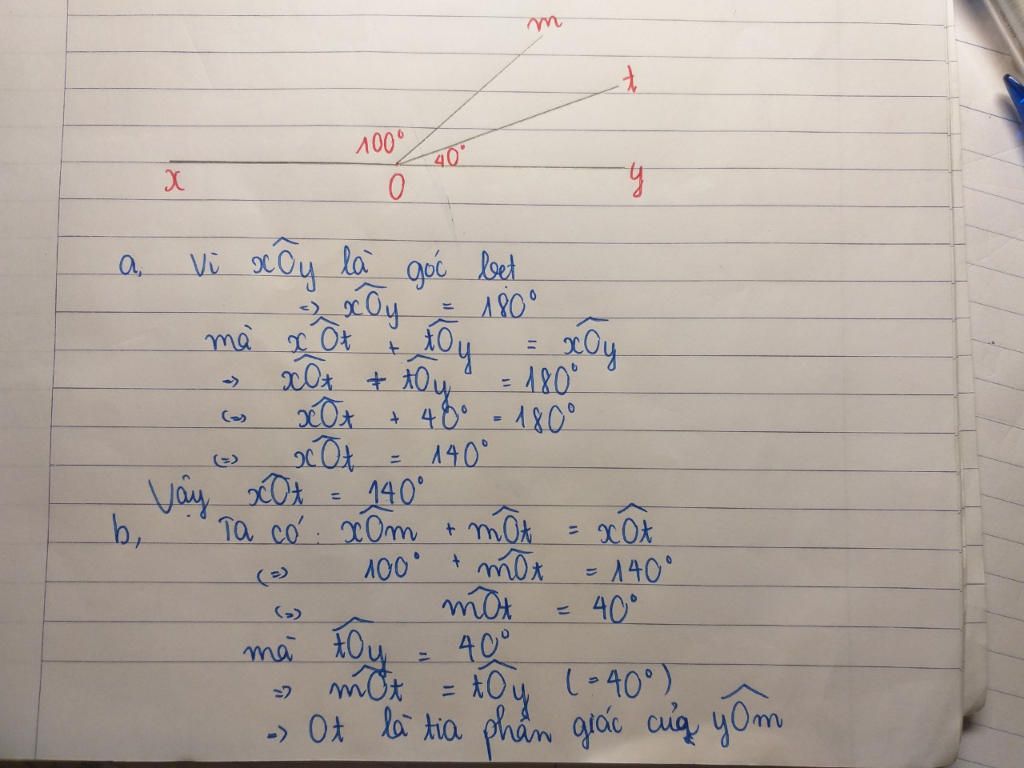 m
t
100°
40°
x
O
y
a, Vì x̂Oy là góc bẹt
=> x̂Oy = 180°
mà x̂Ot + t̂Oy = x̂Oy
=> x̂Ot + t̂Oy = 180°
<=> x̂Ot + 40° = 180°
<=> x̂Ot = 140°
Vậy x̂Ot = 140°
b, Ta có: x̂Om + m̂Ot = x̂Ot
<=> 100° + m̂Ot = 140°
<=> m̂Ot = 40°
mà t̂Oy = 40°
=> m̂Ot = t̂Oy (=40°)
=> Ot là tia phân giác của ŷOm